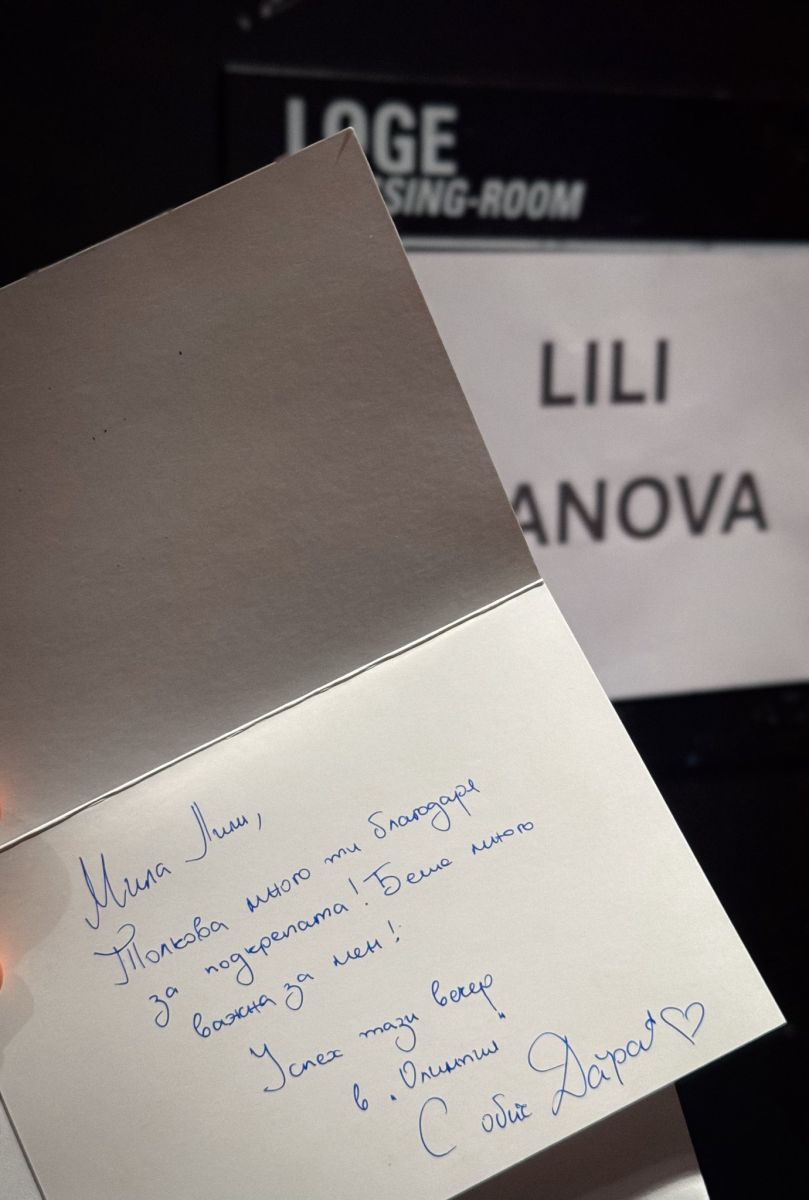 LOGE
SING-ROOM
LILI
ANOVA
Мила Лили,
Толкова много ти благодаря
за подкрепата! Беше много
важна за мен!
Успех тази вечер
в „Олимпия"
С обич Дара ♡